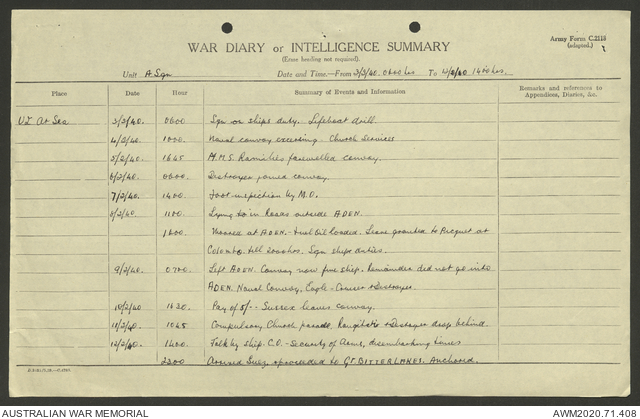 Army Form C.2118
(adapted.)
WAR DIARY or INTELLIGENCE SUMMARY
(Erase heading not required).
Unit A Sqn Date and Time.—From 3/2/40. 0600 hrs To 12/2/40 1400 hrs.
Place Date Hour Summary of Events and Information Remarks and references to Appendices, Diaries, &c.
At Sea 3/2/40. 0600 Sqn on ships duty. Lifeboat drill.
4/2/40. 1000 Naval convoy exercising. Church Services
5/2/40. 1645 H.M.S. Ramillies farewelled convoy.
6/2/40. 0600 Destroyer joined convoy.
7/2/40. 1400 Foot inspection by M.O.
8/2/40. 1100 Lying to in Roads outside ADEN.
1200 Moored at ADEN. - Fuel Oil loaded. Leave granted to Picquet at
Colombo till 2000 hrs. Sqn ships duties.
9/2/40. 0700 Left ADEN. Convoy now five ship. Remainder did not go into
ADEN. Naval Convoy, Eagle - Cruiser + Destroyer.
10/2/40 1630 Pay of 5/- - Sussex leaves convoy.
11/2/40 1045 Compulsory Church parade. Rangitata + Destroyer drop behind.
12/2/40 1400 Talk by ship. C.O. - Security of Arms, disembarking
2300 Around Suez + proceeded to GT. BITTER LAKES. Anchored.
AUSTRALIAN WAR MEMORIAL
AWM2020.71.408